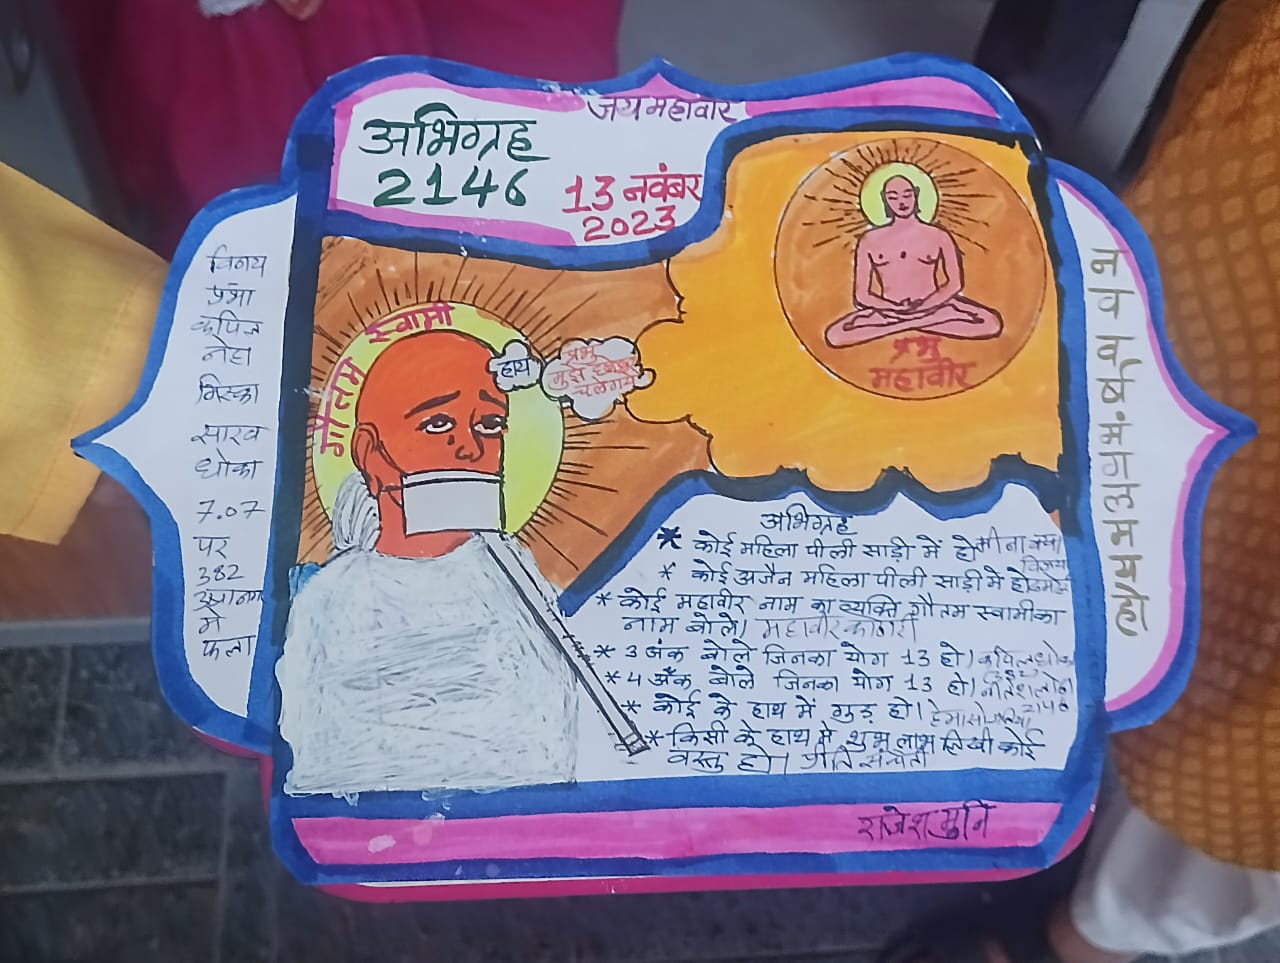 जय महावीर
अभिग्रह
2146
13 नवंबर
2023
विनय
प्रभा
कपिल
नेहा
मिस्का
सारव
धोका
7.07
पर
382
में
फला
गौतम स्वामी
हाय
प्रभु
मुझे छोड़कर
चले गये
प्रभु
महावीर
होय मलगमं र्ष व व न
अभिग्रह
* कोई महिला पीली साड़ी में हो मीना
विजया
* कोई अजैन महिला पीली साड़ी में हो
* कोई महावीर नाम का व्यक्ति गौतम स्वामी का
नाम बोले। महावीर कोठारी
* 3 अंक बोले जिनका योग 13 हो। कपिल धोका
* 4 अँक बोले जिनका योग 13 हो। नीलेश लोढ़ा
2146
* कोई के हाथ में गुड़ हो। हेमा
* किसी के हाथ में शुभ लाभ लिखी कोई
वस्तु हो। प्रीति
राजेश मुनि